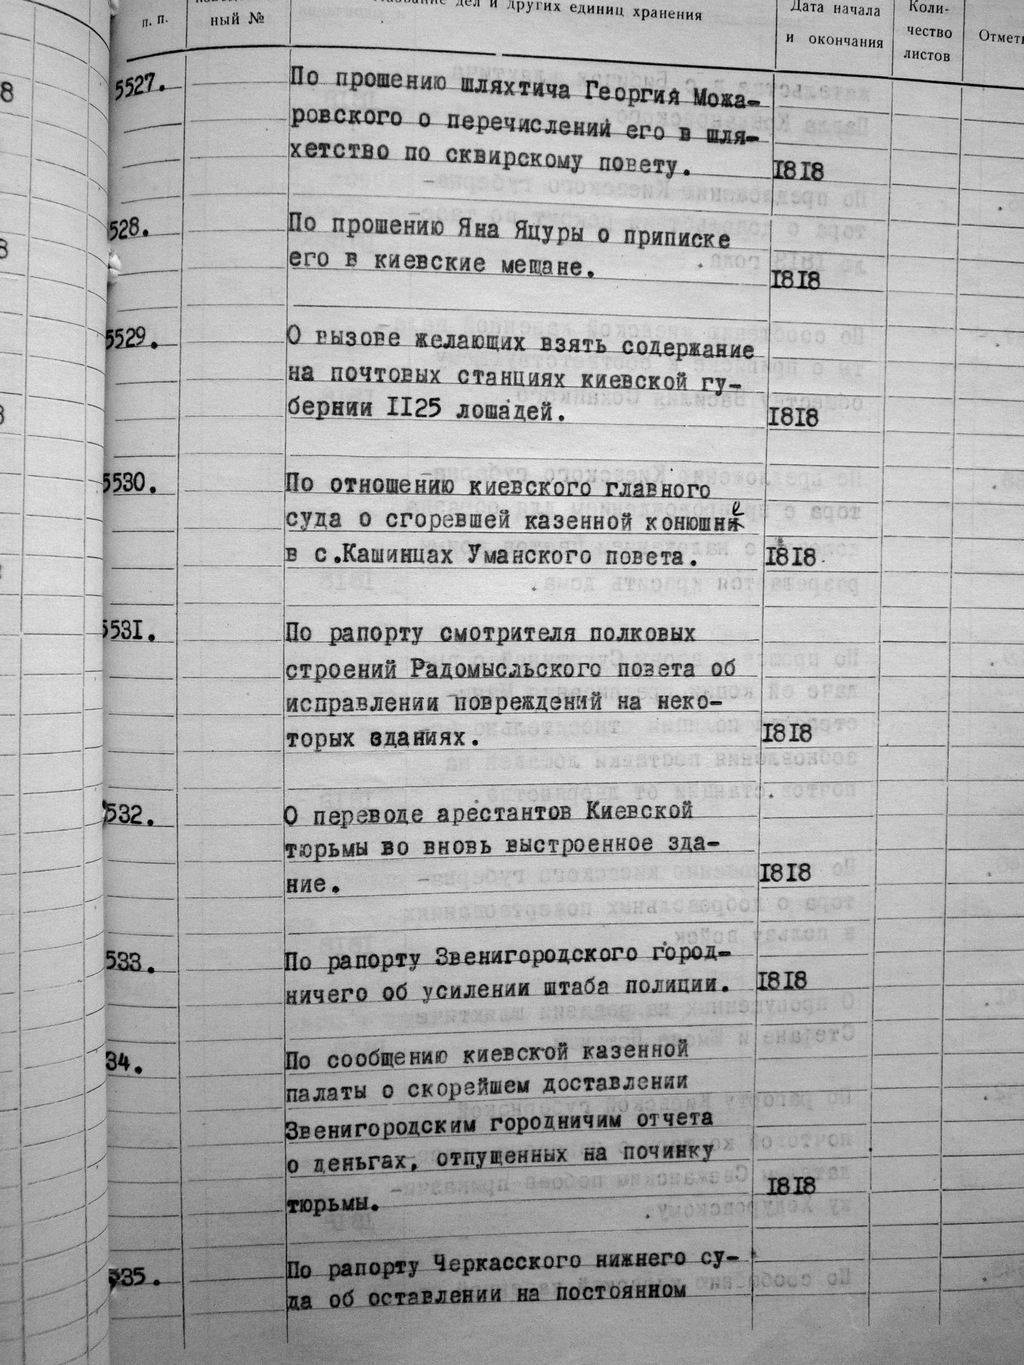 п. п.
ный №
дел и других единиц хранения
Дата начала
и окончания
Коли-
чество
листов
5527.
По прошению шляхтича Георгия Можа-
ровского о перечислений его в шля-
хетство по сквирскому повету.
1818
528.
По прошению Яна Яцуры о приписке
его в киевские мещане.
1818
5529.
О вызове желающих взять содержание
на почтовых станциях киевской гу-
бернии II25 лошадей.
1818
5530.
По отношению киевского главного
суда о сгоревшей казенной конюшне
в с.Кашинцах Уманского повета.
1818
5531.
По рапорту смотрителя полковых
строений Радомысльского повета об
исправлении повреждений на неко-
торых зданиях.
1818
532.
О переводе арестантов Киевской
тюрьмы во вновь выстроенное зда-
ние.
1818
533.
По рапорту Звенигородского город-
ничего об усилении штаба полиции.
1818
34.
По сообщению киевской казенной
палаты о скорейшем доставлении
Звенигородским городничим отчета
о деньгах, отпущенных на починку
тюрьмы.
1818
535.
По рапорту Черкасского нижнего су-
да об оставлении на постоянном